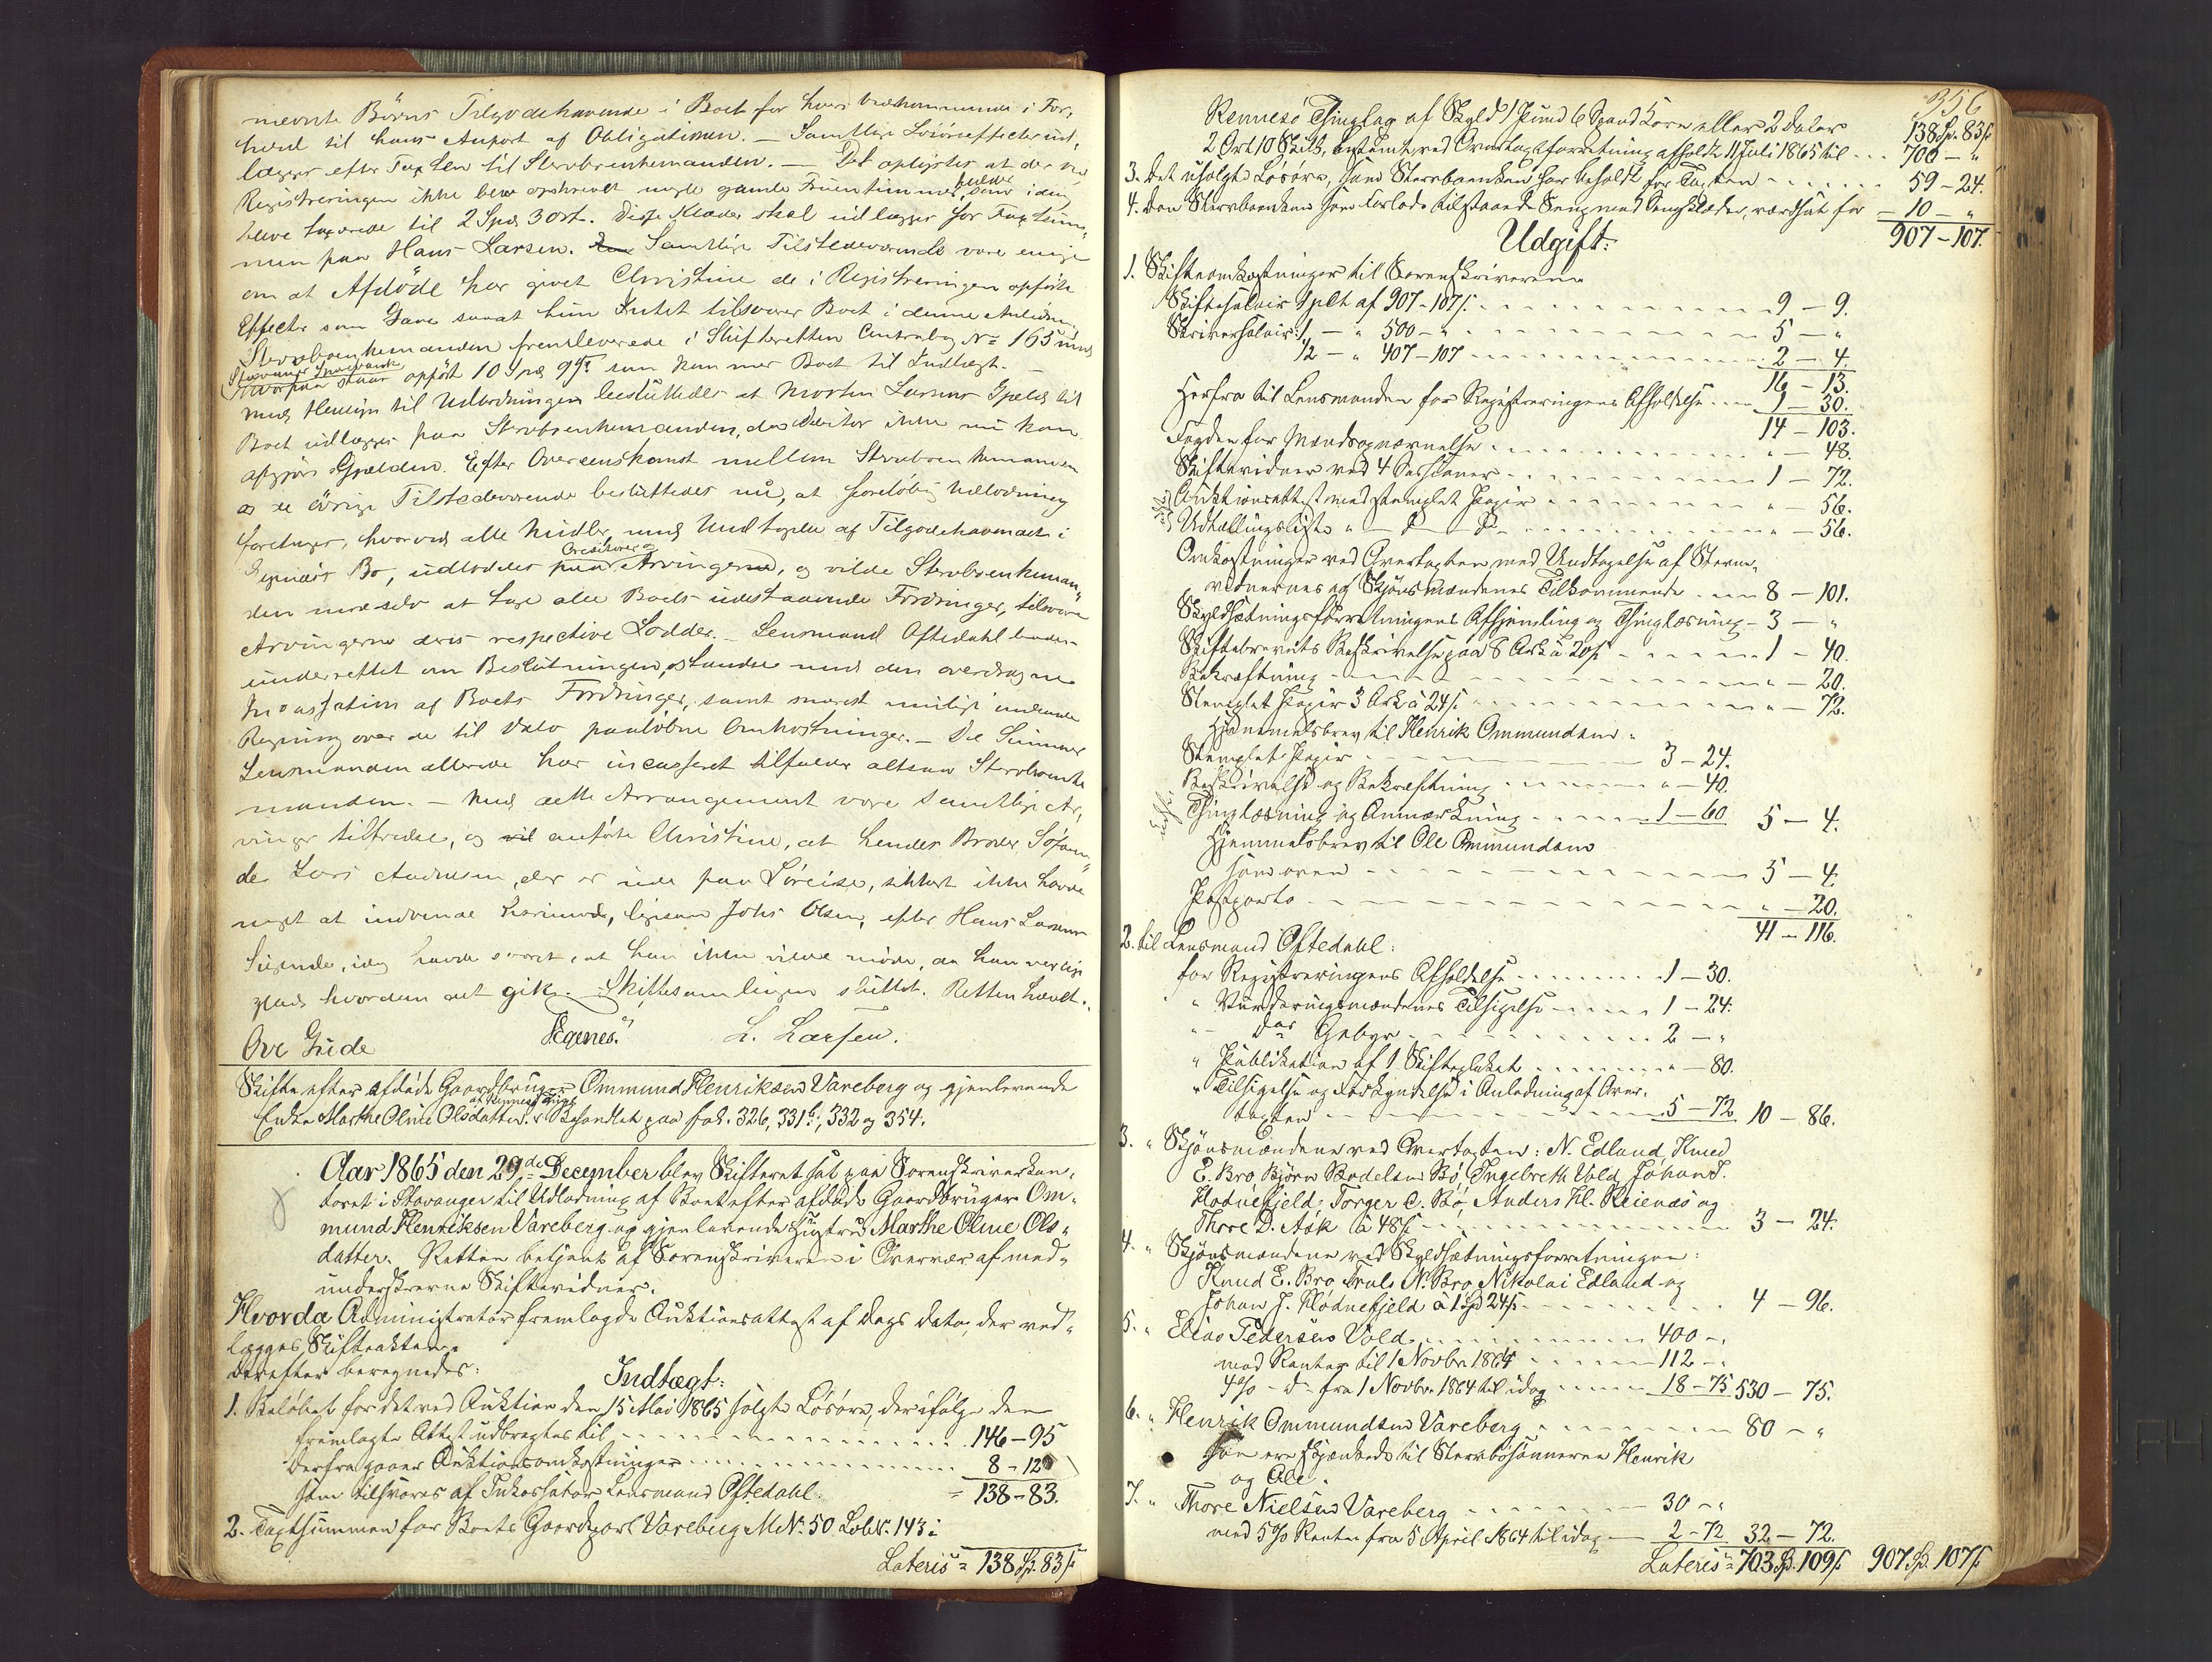 nævnte Börns Tilgodehavende i Boet for hvers vedkommende i For,
hold til hans Anpart af Obligationen. — Samtlige Lösöreeffecter ud,
lægges efter Taxten til Stervboenkemanden. — Det oplystes at der ved
Registreringen ikke blev opskrevet nogle gamle Fruentimmerklæder, som idag
bleve taxerede til 2 Spd 3 ort. Disse Klæder skal udlægges for Taxtsum,
men paa Hans Larsen. Samtlige Tilstedeværende vare enige
om at Afdöde har givet Christine de i Registreringen opförte
Effecter som Gave saaat hun Intet tilsvarer Boet i denne Anledn.
Stervboenkemanden fremleverede i Skifteretten Contrabog No 165 med
Stavanger Sparebank
hvorpaa staar opfört 10 Spd 9 s som kommer Boet til Indtægt. —
Med Hensyn til Udlodningen besluttedes at Morten Larsens Gjæld til
Boet udlægges paa Stervboenkemanden, da Debitor ikke nu kan
afgjöre Gjælden. Efter Overenskomst mellem Stervboenkemanden
og de övrige Tilstedeværende besluttedes nu, at foreløbig Udlodning
foretages, hvorved alle Midler, med Undtagelse af Tilgodehavendet i
Egenæs Bo, udloddes paa Creditorer og Arvingerne, og vilde Stervboenkeman„
den mod selv at tage alle Boets udestaaende Fordringer, tilsvare
Arvingerne deres respective Lodder. — Lensmand Oftedahl bliver
underrettet om Beslutningen, standse med den overdragne
Incassation af Boets Fordringer, samt snarest muligt indsende
Regning over de til Dato paaløbne Omkostninger. — De Summer
Lensmanden allerede har incasseret tilfalder altsaa Stervboenke
manden. — Med dette Arrangement vare samtlige Ar,
vinger tilfredse, og anførte Christine, at hendes Broder Söfaren„
de Lars Andreasen, der er ude paa Söreise, sikkert ikke havde
noget at indvende herimod, ligesom Johs Olsen, efter Hans Larsens
Sigende, idag havde svaret, at han ikke vilde möde, da han var lige
glad hvordan det gik. — Skiftesamlingen sluttet. Retten hævet.
Ove Gude Egenes. L. Larsen.
Skifte efter afdöde Gaardbruger Ommund Henriksen Vareberg og gjenlevende
Enke Marthe Oline Olsdatter. af Rennesö Thingl. Behandlet paa fol. 326, 331 b, 332 og 354.
Aar 1865 den 29de December blev Skifteret sat paa Sorenskriverkon„
toret i Stavanger til Udlodning af Boet efter afdöde Gaardbruger Om„
mund Henriksen Vareberg og gjenlevende Hustru Marthe Oline Ols„
datter. Retten betjent af Sorenskriveren i Overvær af med„
underskrevne Skiftevidner.
Hvorda Administrator fremlagde Auktionsattest af Dags dato, der ved„
lægges Skifteakten.
Derefter beregnedes:
Indtægt:
1. Beløbet for det ved Auktion den 15 Mai 1865 solgte Lösöre, der ifølge den
fremlagte Attest udbragtes til 146 – 95
Derfra gaaer Auktionsomkostninger 8 – 12
som tilsvares af Inkassator Lensmand Oftedahl. = 138 – 83.
2. Taxtsummen for Boets Gaardpart Vareberg M.No. 50 Lob.No. 143 i
Lateris = 138 Sp. 83 s
356
Rennesö Thinglag af Skyld 1 Pund 6 Spand Korn eller 2 Daler 138 Sp. 83 s
2 Ort 10 Skill, bestemt ved Overtaxtforretning afholdt 11 Juli 1865 til 700 – „
3. Det usolgte Lösöre, som Stervboenken har beholdt for Taxten 59 – 24.
4. Den Stervboenken som Forlods tilstaaede Seng med Sengklæder, værdsat for 10 – „
907 – 107.
Udgift:
1. Skifteomkostninger til Sorenskriveren
Skiftesalair 1 pCt af 907–107 s. 9 – 9.
Skriversalair: 1 – „ 500 – „ 5 – „
1/2 – „ 407–107 2 – 4.
16 – 13.
Herfra til Lensmanden for Registreringens Afholdelse 1 – 30.
14 – 103.
Fogden for Mændsopnævnelse „ – 48.
Skiftevidner ved 4 Sessioner 1 – 72.
Auktionsattest med stemplet Papir „ – 56.
Udtællingsliste „ – D – D „ – 56.
Omkostninger ved Overtaxten med Undtagelse af Stevne„
vidnernes og Skjönsmændenes Tilkommende 8 – 101.
Skyldsætningsforretningens Afhjemling og Thinglæsning 3 – „
Skiftebrevets Beskrivelse paa 8 Ark à 20 s 1 – 40.
Bekræftning „ – 20.
Stemplet Papir 3 Ark à 24 s „ – 72.
Hjemmelsbrev til Henrik Ommundsen:
Stemplet Papir 3 – 24.
Beskrivelse og Bekræftning „ – 40.
Thinglæsning og Anmærkning 1 – 60 5 – 4.
Hjemmelsbrev til Ole Ommundsen
som oven 5 – 4.
Postporto „ – 20.
41 – 116.
2. til Lensmand Oftedahl:
for Registreringens Afholdelse 1 – 30.
„ Vurderingsmændenes Tilsigelse 1 – 24.
„ Ds Gebyr 2 – „
„ Publikation af 1 Skifteplakat „ – 80.
„ Tilsigelse og Forkyndelse i Anledning af Over„
taxten 5 – 72 10 – 86.
3. „ Skjönsmændene ved Overtaxten: N. Edland, Knud
E. Bro, Björn Bodelsen Bö, Ingebreth Vold, Johan J.
Hodnefjeld, Torger C. Bö, Anders Hl. Reienæs og
Thore D. Ask à 48 s 3 – 24.
4. „ Skjönsmændene ved Skyldsætningsforretningen:
Knud E. Bro, Truls N. Bro, Nikolai Edland og
Johan J. Hodnefjeld à 1 Sp 24 s 4 – 96.
5. „ Elias Pedersen Vold 400 – „
med Renter til 1 Novbr. 1864 112 – „
4 % – d – fra 1 Novbr. 1864 til idag 18 – 75 530 – 75.
6. „ Henrik Ommundsen Vareberg 80 – „
som ere skjænkede til Stervbosönnerne Henrik
og Ole.
7. „ Thore Nielsen Vareberg 30 – „
med 5 % Renter fra 5 April 1864 til idag 2 – 72 32 – 72.
Lateris = 703 Sp. 109 s 907 Sp. 107 s